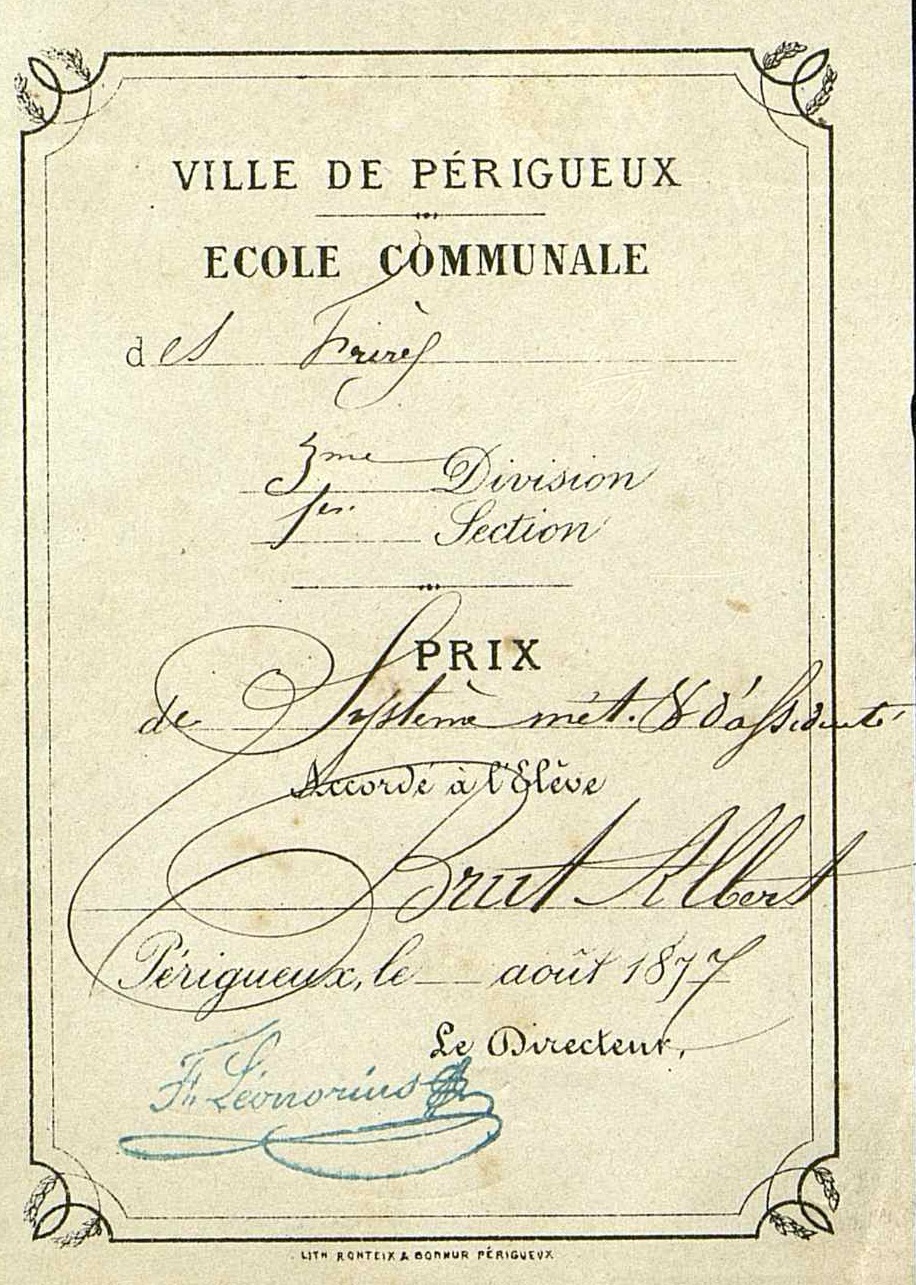 VILLE DE PÉRIGUEUX
ECOLE COMMUNALE
des Frères
3me Division
1er Section
PRIX
de Système mét. & d'assiduité
Accordé à l'Elève
Brut Albert
Périgueux, le août 1877
Le Directeur,
F. Léonorius
LITH RONTEIX & BONNUR PÉRIGUEUX